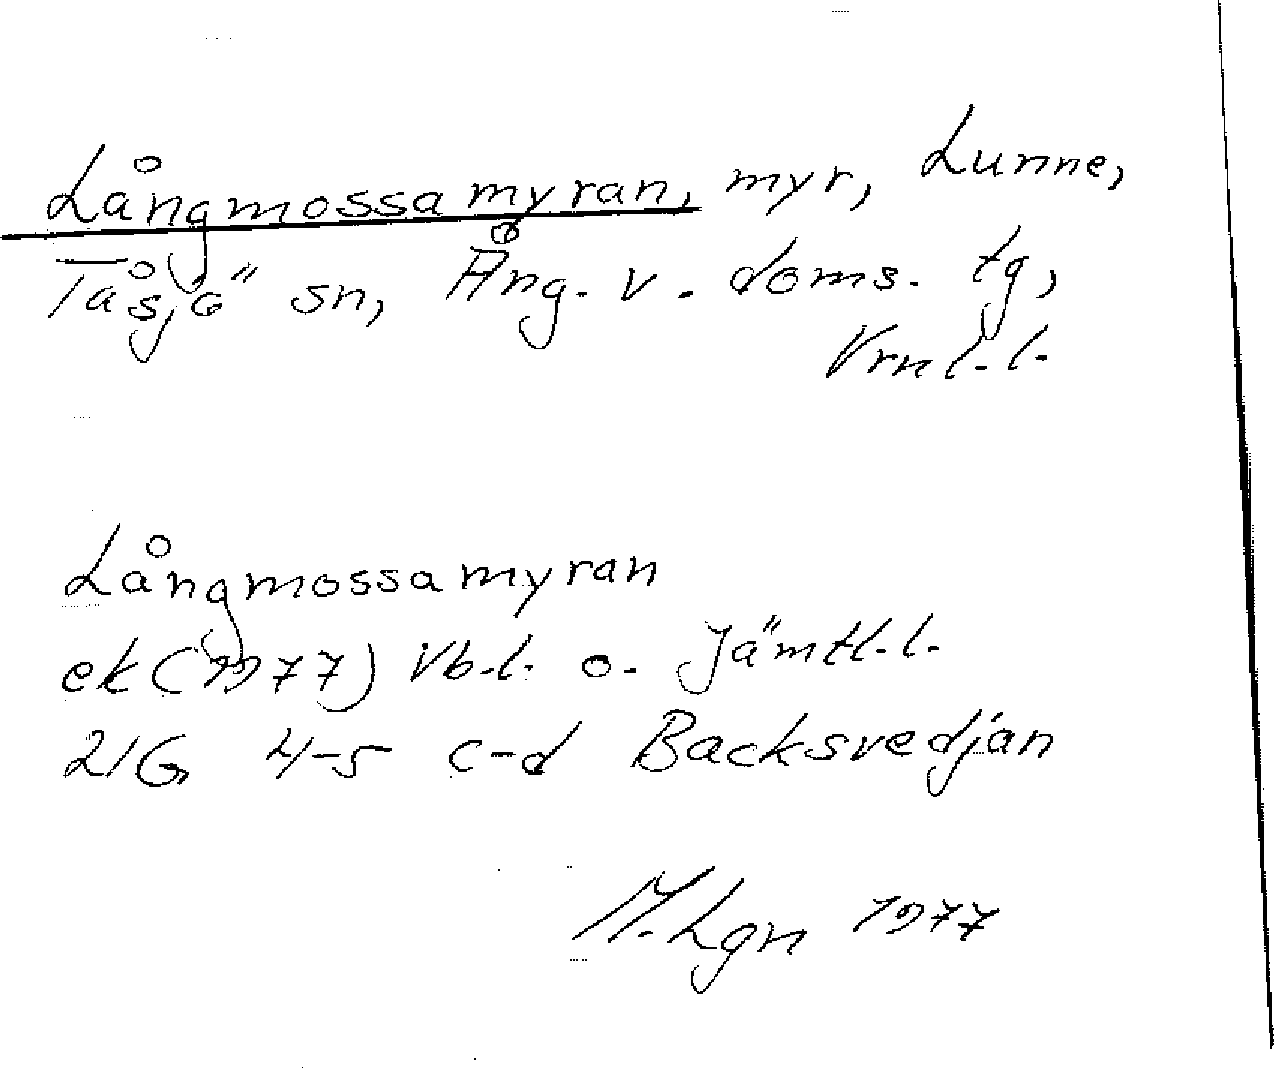 Långmossamyran, myr, Lunne,
Tåsjö sn, Ång. v. doms. tg,
Vrnl.l.
Långmossamyran
ek (1977) Vb.l. o. Jämtl.l.
21G 4-5 c-d Backsvedjan
M. Lgn 1977